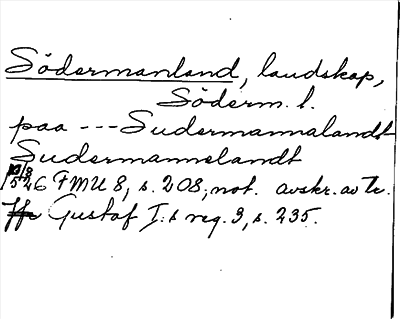 Södermanland, landskap,
Söderm. l.
paa --- Sudermannalandt
Sudermannelandt
1526 FMU 8, s. 208, not. avskr. av Tr.
Gustaf I:s reg. 3, s. 235.